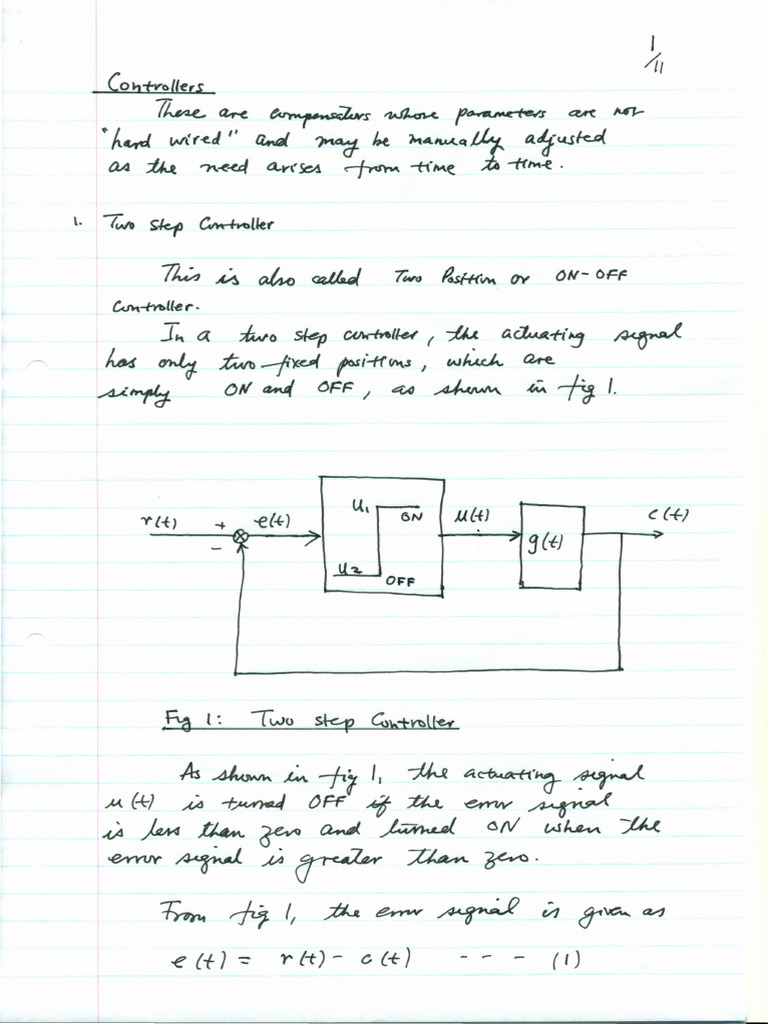 1/11
Controllers
These are compensators whose parameters are not
"hard wired" and may be manually adjusted
as the need arises from time to time.
1. Two step Controller
This is also called Two Position or ON-OFF
Controller.
In a two step controller, the actuating signal
has only two fixed positions, which are
simply ON and OFF, as shown in fig 1.
r(t) + - e(t) U1 ON U2 OFF u(t) g(t) c(t)
Fig 1: Two step Controller
As shown in fig 1, the actuating signal
u(t) is turned OFF if the error signal
is less than zero and turned ON when the
error signal is greater than zero.
From fig 1, the error signal is given as
e(t) = r(t) - c(t) - - - (1)